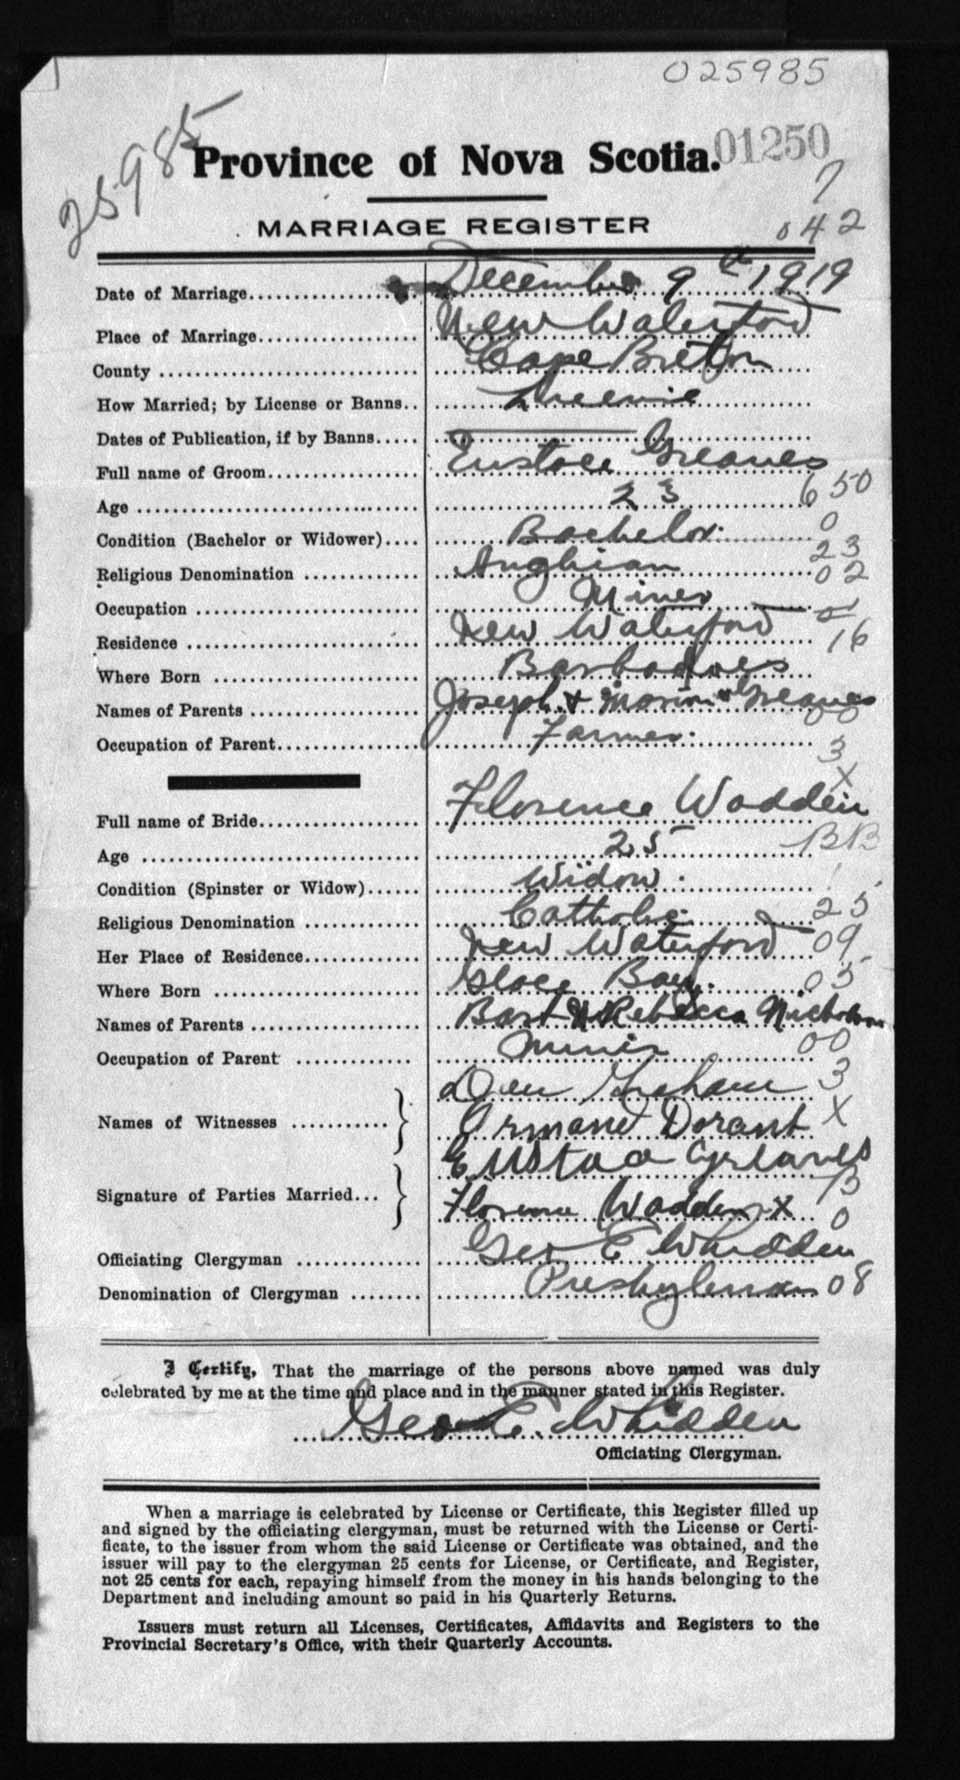 025985
25985
Province of Nova Scotia. 01250
7
MARRIAGE REGISTER 042
Date of Marriage December 9th 1919
Place of Marriage New Waterford
County Cape Breton
How Married; by License or Banns License
Dates of Publication, if by Banns
Full name of Groom Eustace Greaves
Age 23 650
Condition (Bachelor or Widower) Bachelor. 0
Religious Denomination Anglican 23
Occupation Miner 02
Residence New Waterford
Where Born Barbadoes 16
Names of Parents Joseph & Greaves
Occupation of Parent Farmer. 00
3
X
Full name of Bride Florence Wadden
Age 25 BB
Condition (Spinster or Widow) Widow.
Religious Denomination Catholic 25
Her Place of Residence New Waterford 09
Where Born Glace Bay. 05
Names of Parents Bart & Rebecca Nicholson
Occupation of Parent Miner 00
Names of Witnesses Graham 3
Armand Dorant X
Signature of Parties Married Eustace Greaves
Florence Wadden X B
0
Officiating Clergyman Geo E Whidden
Denomination of Clergyman Presbyterian 08
I Certify, That the marriage of the persons above named was duly
celebrated by me at the time and place and in the manner stated in this Register.
Geo E. Whidden
Officiating Clergyman.
When a marriage is celebrated by License or Certificate, this Register filled up
and signed by the officiating clergyman, must be returned with the License or Certi-
ficate, to the issuer from whom the said License or Certificate was obtained, and the
issuer will pay to the clergyman 25 cents for License, or Certificate, and Register,
not 25 cents for each, repaying himself from the money in his hands belonging to the
Department and including amount so paid in his Quarterly Returns.
Issuers must return all Licenses, Certificates, Affidavits and Registers to the
Provincial Secretary's Office, with their Quarterly Accounts.